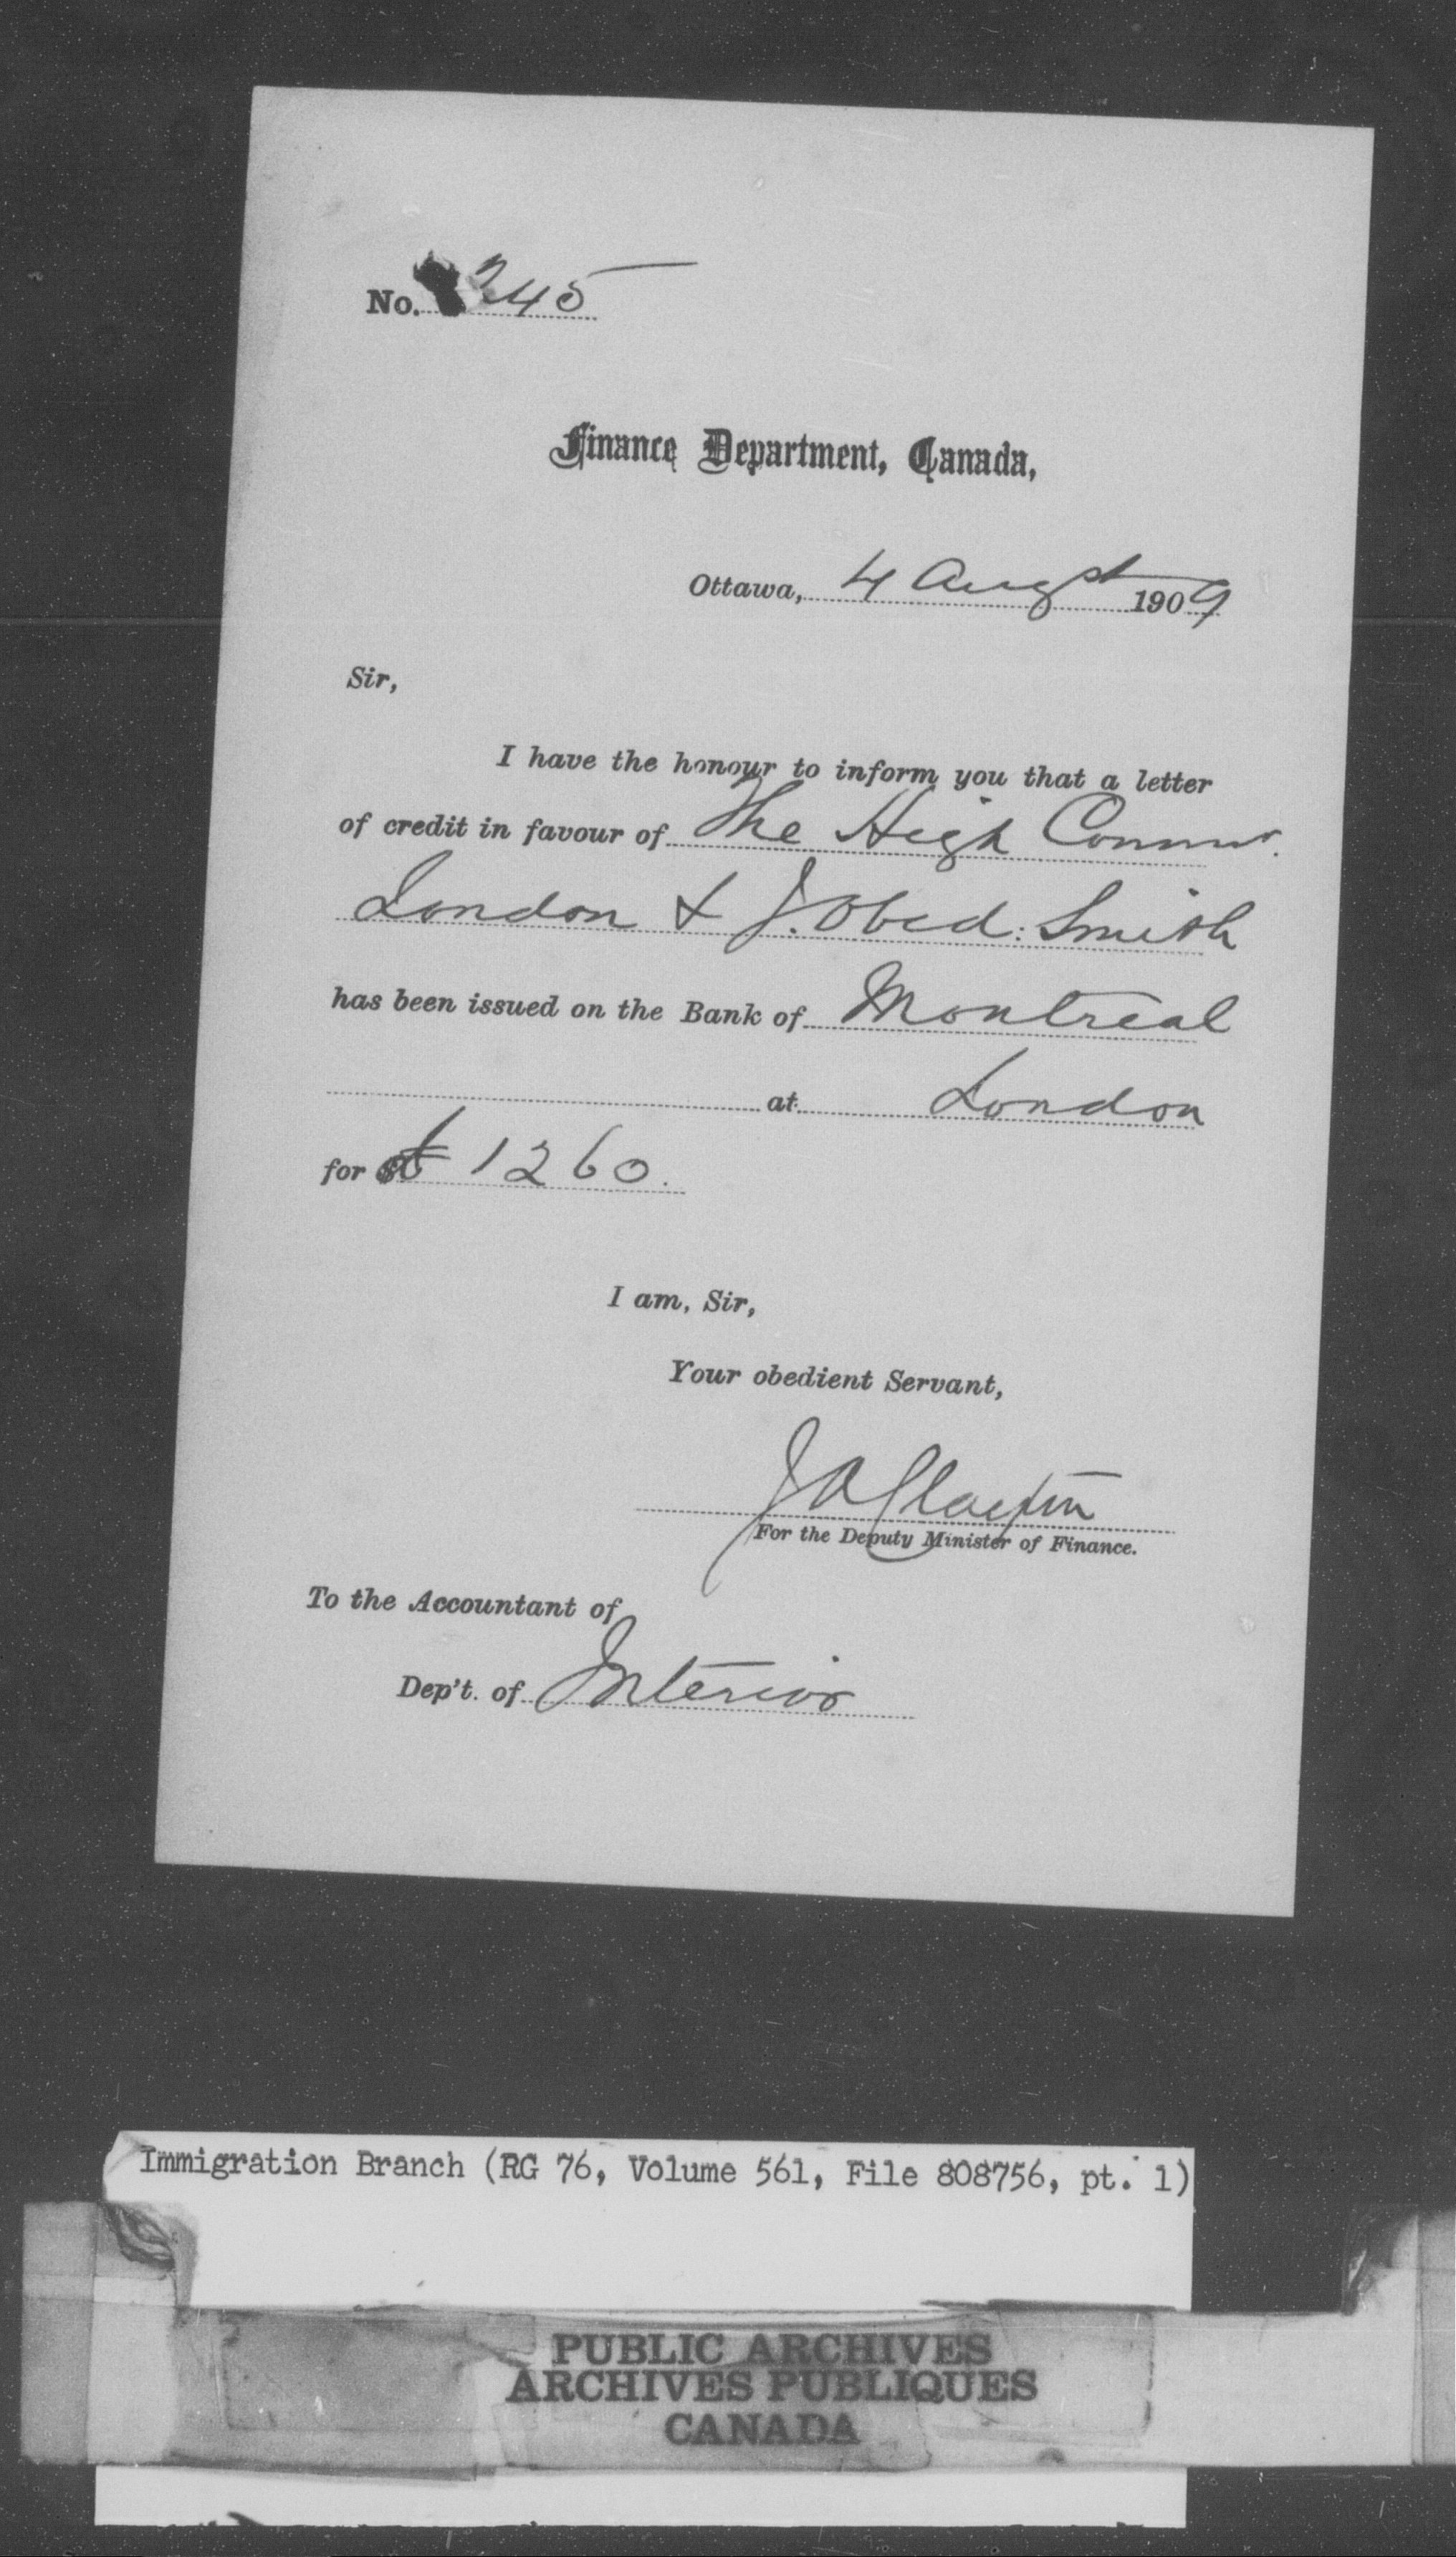 No. 245
Finance Department, Canada,
Ottawa, 4 Augst 1909
Sir,
I have the honour to inform you that a letter
of credit in favour of The High Commr.
London & J. Obed: Smith
has been issued on the Bank of Montreal
at London
for £ 1260.
I am, Sir,
Your obedient Servant,
For the Deputy Minister of Finance.
To the Accountant of
Dep't. of Interior
Immigration Branch (RG 76, Volume 561, File 808756, pt. 1)
PUBLIC ARCHIVES
ARCHIVES PUBLIQUES
CANADA